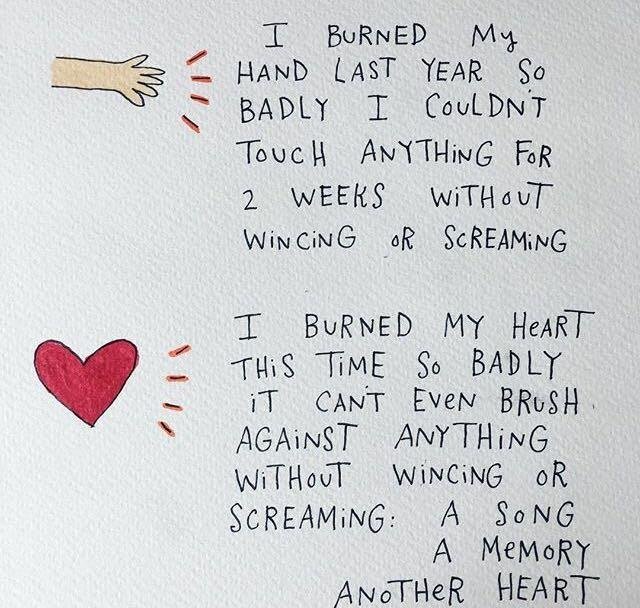 I BURNED My
HAND LAST YEAR So
BADLY I CoULDN'T
ToucH ANYTHiNG FoR
2 WEEKS WiTHouT
WiNCiNG oR ScREAMiNG
I BURNED MY HeART
THiS TiME So BADLY
iT CAN'T EVeN BRuSH
AGAiNST ANYTHiNG
WiTHouT WiNCiNG oR
SCREAMiNG: A SoNG
A MeMoRY
ANoTHeR HEART